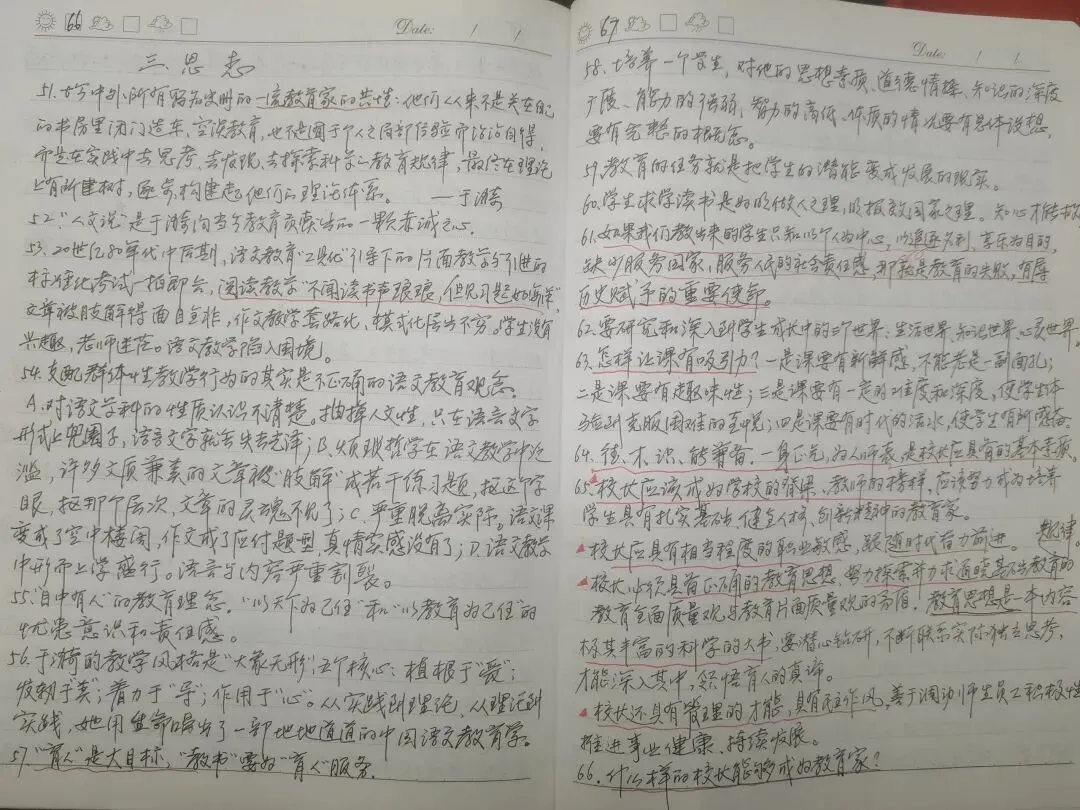 66
Date:
三、思 考
51.古今中外,所有留名史册的一流教育家的共性:他们从来不是关在自己
的书房里闭门造车、空谈教育,也不是囿于个人之局部经验而沾沾自得,
而是在实践中去思考、去发现、去探索科学的教育规律,最终在理论
上有所建树,逐步构建起他们的理论体系。 ——于漪
52."人文说"是于漪向当今教育贡献出的一颗赤诚之心。
53.20世纪80年代中后期,语文教育"工具化"引导下的片面教学与引进的
标准化考试一拍即合,阅读教学"不闻读书声琅琅,但见习题如海洋",
文章被肢解得面目全非,作文教学套路化、模式化层出不穷。学生没有
兴趣,老师迷茫。语文教学陷入困境。
54.支配群体性教学行为的其实是不正确的语文教育观念
A.对语文学科的性质认识不清楚。抽掉人文性,只在语言文字
形式上兜圈子,语言文字就会失去光泽;B.烦琐哲学在语文教学中泛
滥,许多文质兼美的文章被"肢解"成若干练习题,抠这个字
眼,抠那个层次,文章的灵魂不见了;C.严重脱离实际。语文课
变成了空中楼阁,作文成了应付题型,真情实感没有了;D.语文教学
中形而上学盛行。语言与内容严重割裂。
55."目中有人"的教育理念。"以天下为己任"和"以教育为己任"的
忧患意识和责任感。
56.于漪的教学风格是"大象无形",五个核心:植根于"爱";
发轫于"美";着力于"导";作用于"心"。从实践到理论,从理论到
实践,她用生命写出了一部地地道道的中国语文教育学。
57."育人"是大目标,"教书"要为"育人"服务。
67
Date:
58.培养一个学生,对他的思想素质、道德情操、知识的深度
广度、能力的强弱、智力的高低、体质的情况要有总体设想,
要有完整的概念。
59.教育的任务就是把学生的潜能变成发展的现实。
60.学生求学读书是为明做人之理,明报效国家之理。知心才能教
61.如果我们教出来的学生只知以个人为中心,以追逐名利、享乐为目的,
缺少服务国家、服务人民的社会责任感,那就是教育的失败,有辱
历史赋予的重要使命。
62.要研究和深入到学生成长中的三个世界:生活世界、知识世界、心灵世界。
63.怎样让课有吸引力?一是课要有新鲜感,不能老是一副面孔;
二是课要有趣味性;三是课要有一定的难度和深度,使学生体
验到克服困难的喜悦;四是课要有时代的活水,使学生有所感奋。
64.德、才、识、能兼备,一身正气,为人师表,是校长应具有的基本素质。
65.校长应该成为学校的脊梁、教师的榜样,应该努力成为培养
学生具有扎实基础、健全人格、创新精神的教育家。
校长应具有相当程度的职业敏感,跟随时代奋力前进。 规律
校长必须具有正确的教育思想,努力探索并力求通晓基础教育的
教育全面质量观与教育片面质量观的矛盾。教育思想是一本内容
极其丰富的科学的大书,要潜心钻研,不断联系实际独立思考,
才能深入其中,领悟育人的真谛。
校长还具有管理的才能,具有民主作风,善于调动师生员工积极性
推进事业健康、持续发展。
66.什么样的校长能够成为教育家?